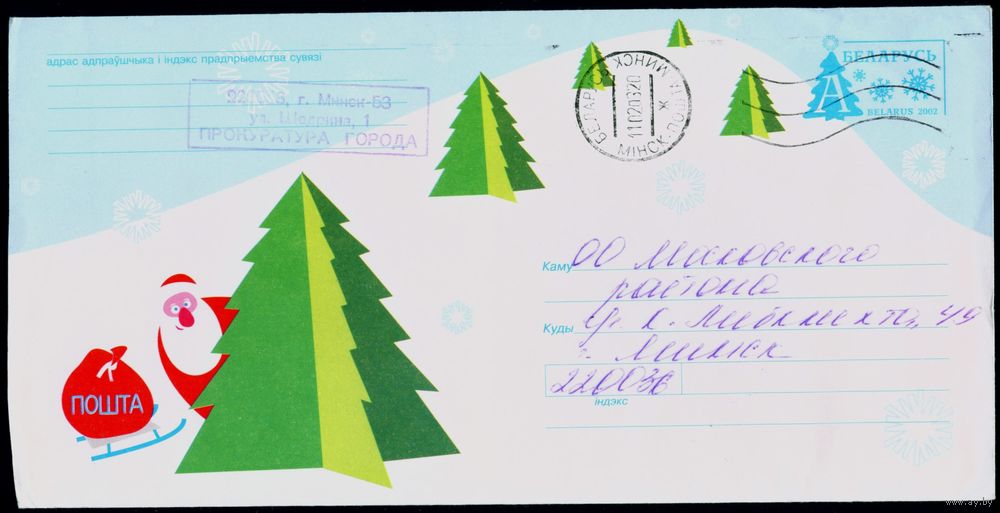 адрас адпраўшчыка і індэкс прадпрыемства сувязі
г. Минск-53
ул. Щедрина, 1
ПРОКУРАТУРА ГОРОДА
БЕЛАРУСЬ
МИНСК
МІНСК
11020320
БЕЛАРУСЬ
А
BELARUS 2002
Каму ОО Московского
района
Куды ул. К. Либкнехта, 49
г. Минск
220036
індэкс
ПОШТА
www.ay.by